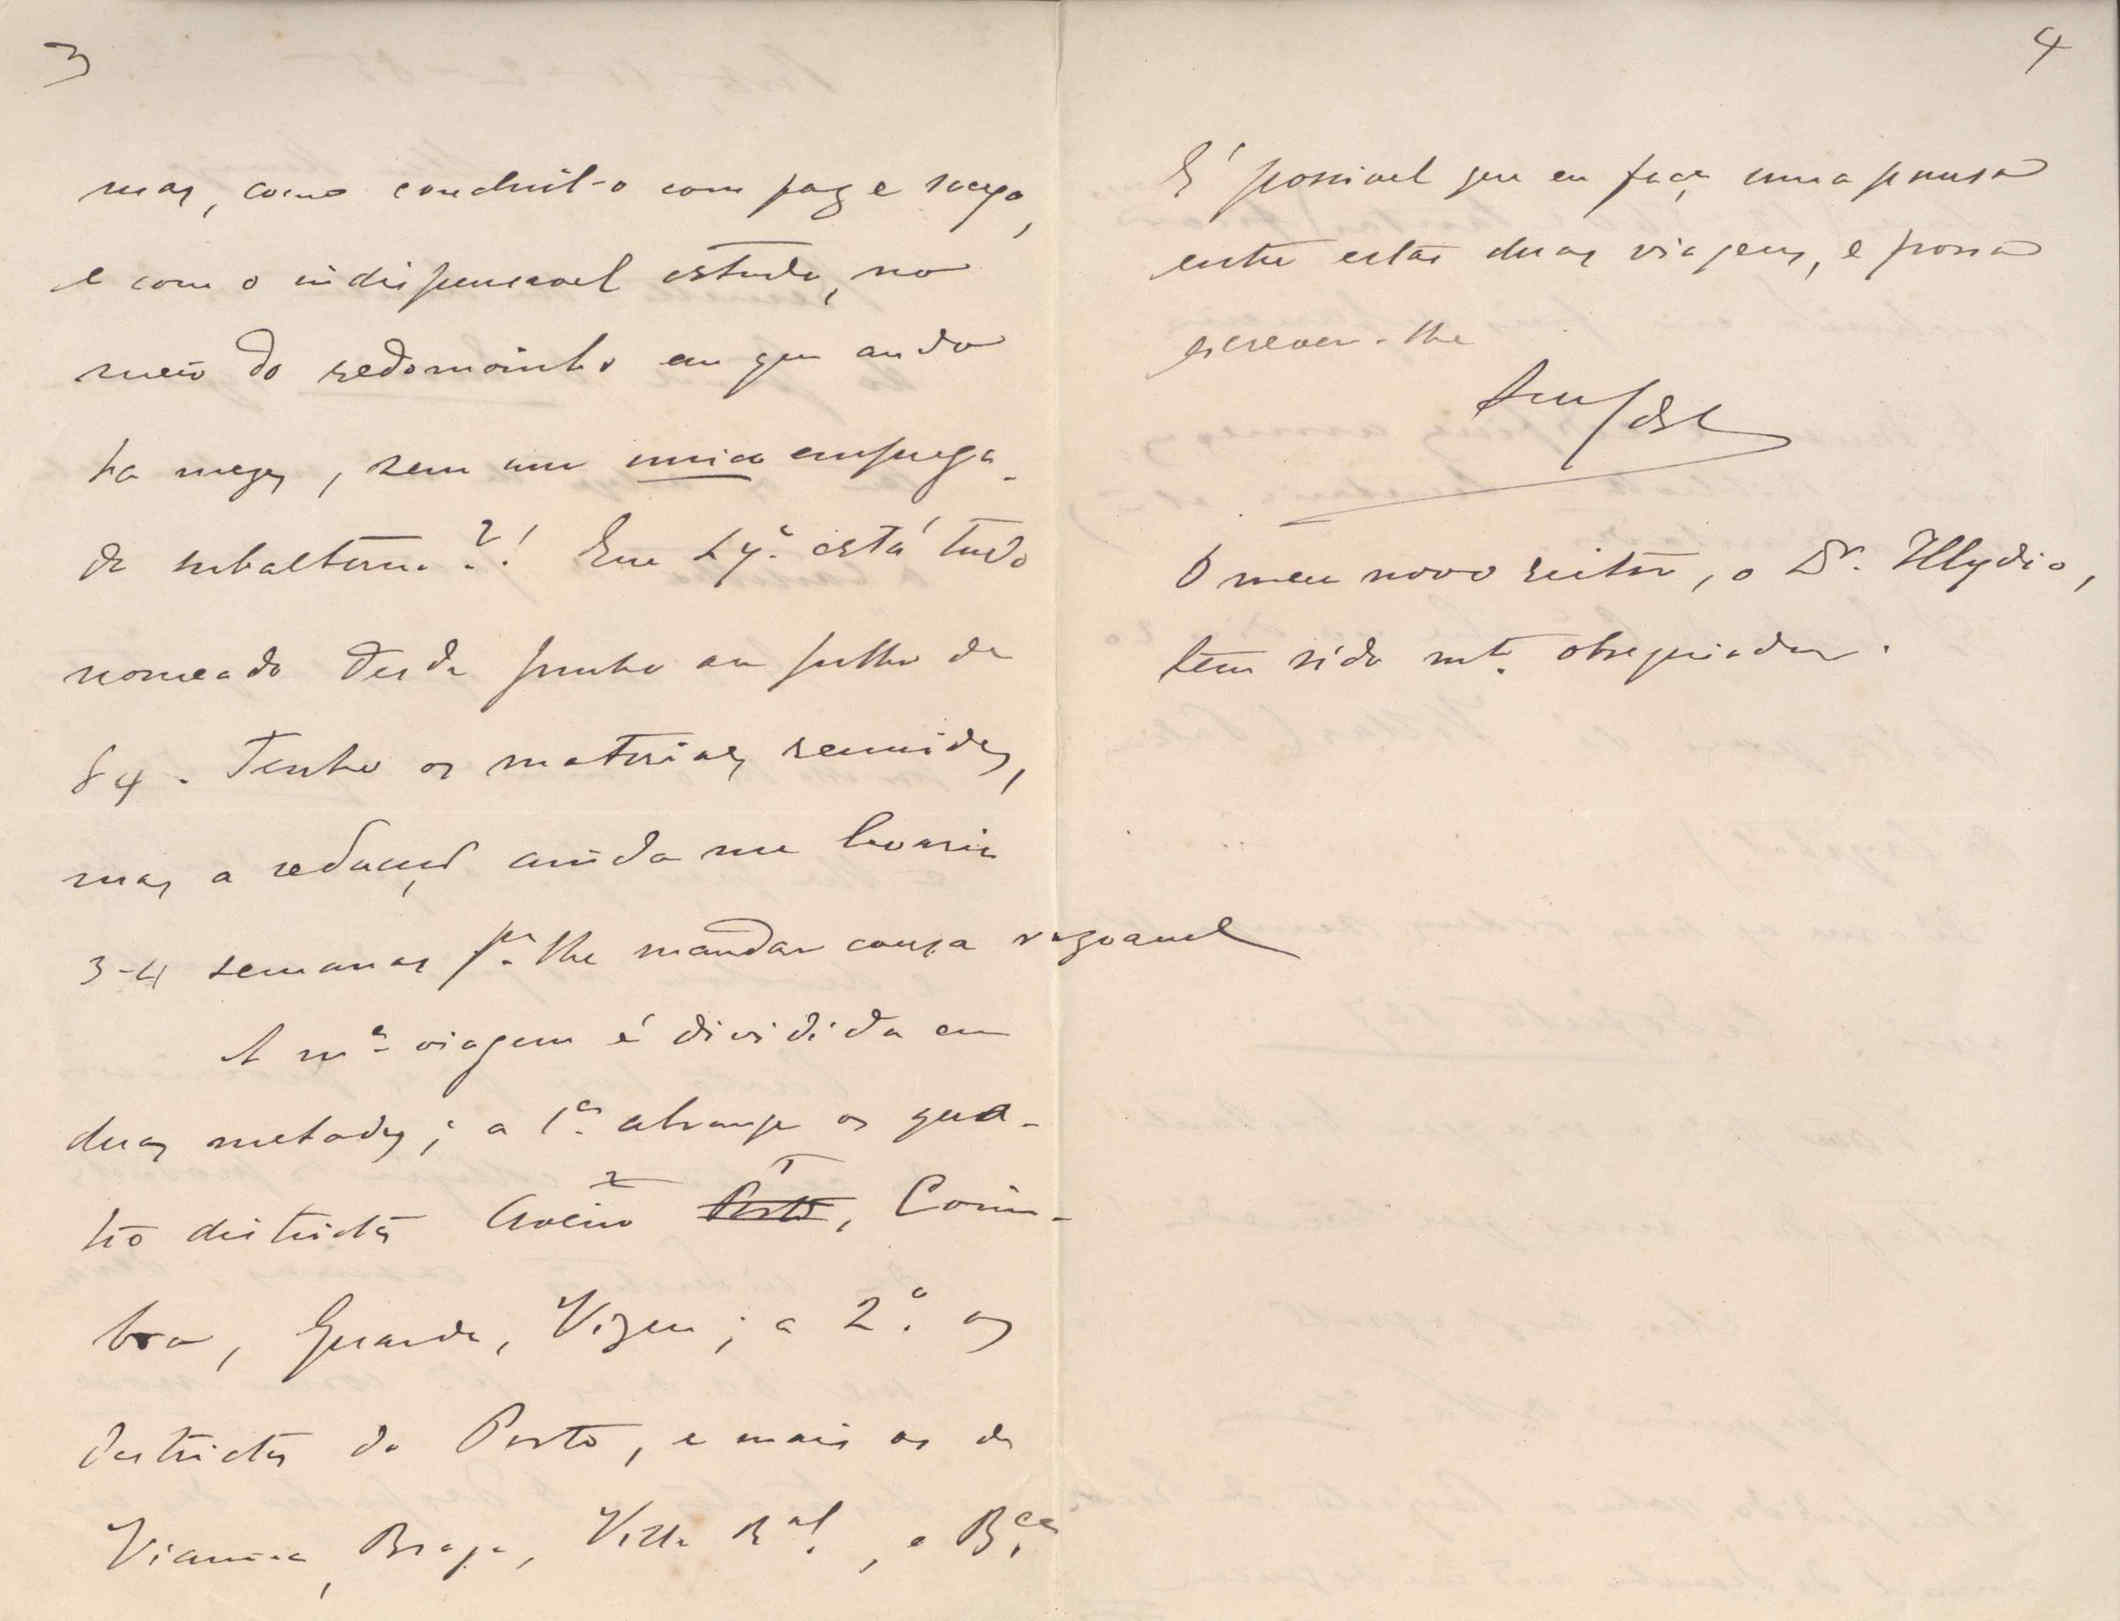 3
mas, como conduzil-o com paz e socego,
e com o indispensavel estudo, no
meio do redomoinho em que ando
ha mezes, sem um unico emprega-
do subalterno?! Em Lxª. está tudo
nomeado desde junho ou julho de
84. Tenho os materiaes reunidos,
mas a redacção ainda me levaria
3-4 semanas pª. lhe mandar cousa rasoavel
A mª. viagem é dividida em
duas metades; a 1ª. abrange os qua-
tro districtos Aveiro Porto, Coim-
bra, Guarda, Vizeu; a 2ª. os
destrictos do Porto, e mais os de
Vianna, Braga, Villa Rªl., e Bçª.
4
É possivel que eu faça uma pausa
entre estas duas viagens, e possa
escrever-lhe
O meu novo reitor, o Dr. Illydio,
tem sido mtº. obsequiador.